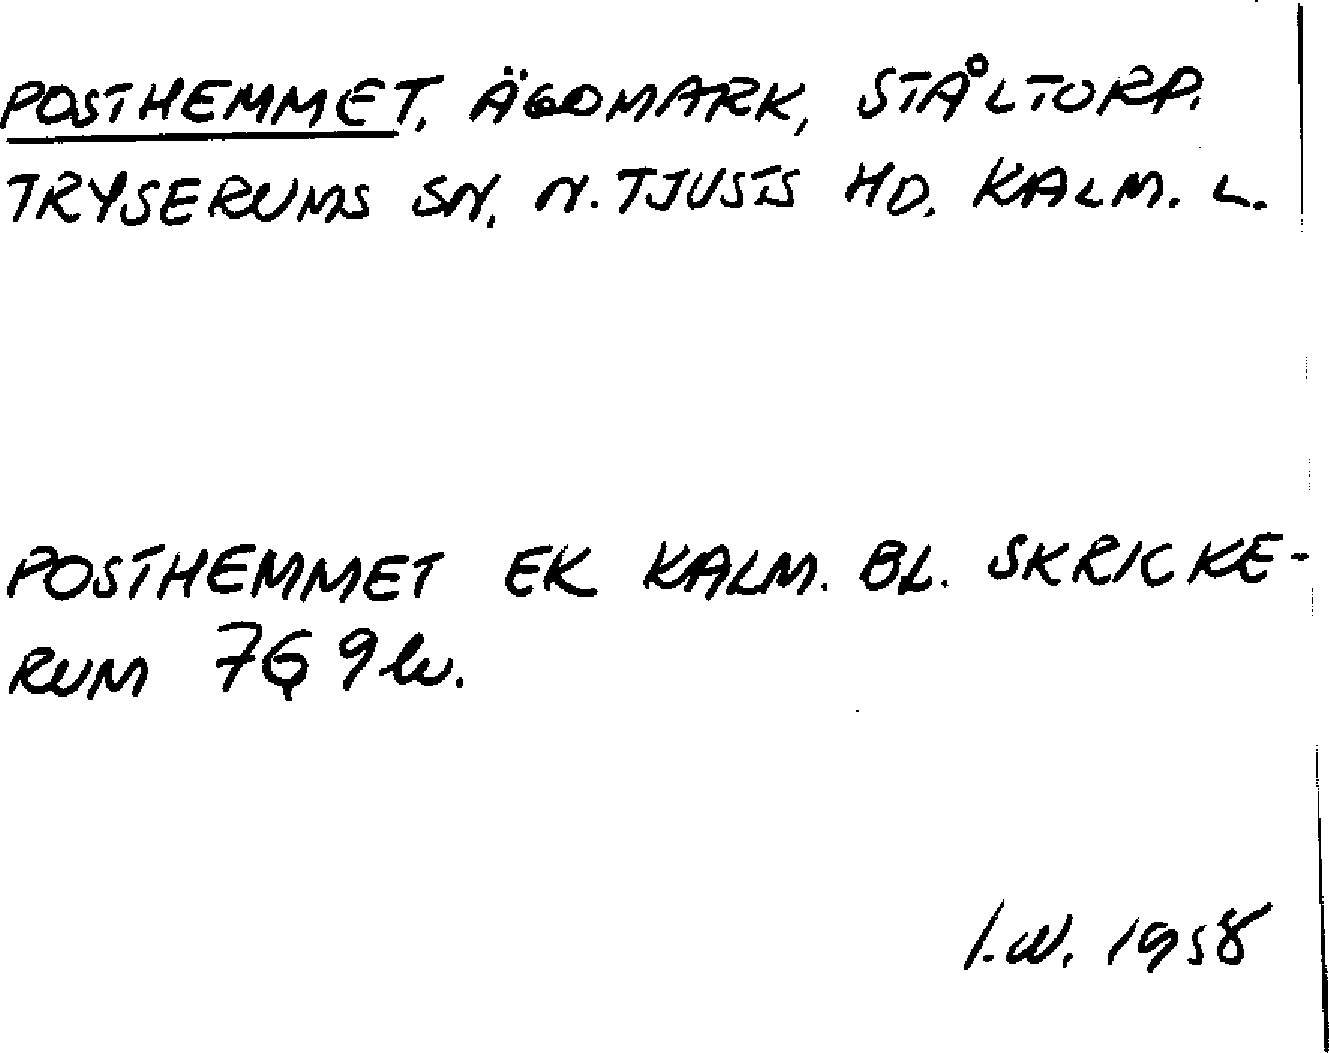 POSTHEMMET, ÄGOMARK, STÅLTORP.
TRYSERUMS SN, N. TJUSTS HD. KALM. L.
POSTHEMMET EK KALM. BL. SKRICKE-
RUM 7G 9 lv.
I.W. 1958